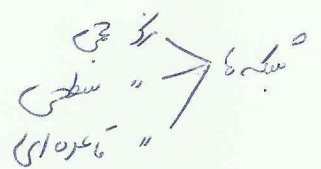 شبکه ها
مرکز حجمی
" سطحی
" قاعده ای